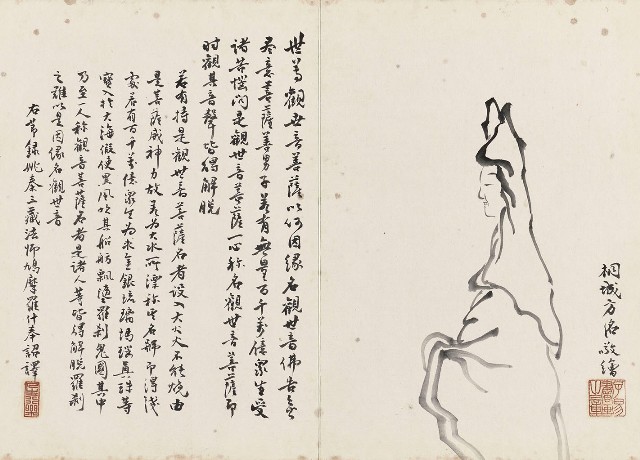 桐城方名敬繪
世尊觀世音菩薩以何因緣名觀世音佛告無
盡意菩薩善男子若有無量百千萬億眾生受
諸苦惱聞是觀世音菩薩一心稱名觀世音菩薩即
時觀其音聲皆得解脫
若有持是觀世音菩薩名者設入大火火不能燒由
是菩薩威神力故若為大水所漂稱其名號即得淺
處若有百千萬億眾生為求金銀琉璃瑪瑙真珠等
寶入於大海假使黑風吹其船舫飄墮羅剎鬼國其中
乃至一人稱觀音菩薩名者是諸人等皆得解脫羅剎
之難以是因緣名觀世音
右節錄姚秦三藏法師鳩摩羅什奉詔譯